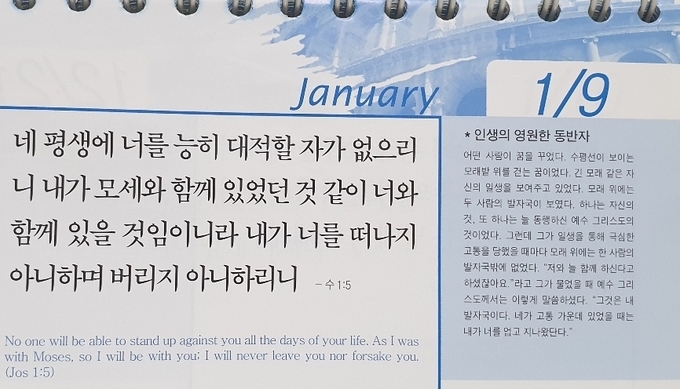 January
1/9
네 평생에 너를 능히 대적할 자가 없으리
니 내가 모세와 함께 있었던 것 같이 너와
함께 있을 것임이니라 내가 너를 떠나지
아니하며 버리지 아니하리니 - 수 1:5
No one will be able to stand up against you all the days of your life. As I was
with Moses, so I will be with you; I will never leave you nor forsake you.
(Jos 1:5)
* 인생의 영원한 동반자
어떤 사람이 꿈을 꾸었다. 수평선이 보이는
모래밭 위를 걷는 꿈이었다. 긴 모래 같은 자
신의 일생을 보여주고 있었다. 모래 위에는
두 사람의 발자국이 보였다. 하나는 자신의
것, 또 하나는 늘 동행하신 예수 그리스도의
것이었다. 그런데 그가 일생을 통해 극심한
고통을 당했을 때마다 모래 위에는 한 사람의
발자국밖에 없었다. "저와 늘 함께 하신다고
하셨잖아요."라고 그가 물었을 때 예수 그리
스도께서는 이렇게 말씀하셨다. "그것은 내
발자국이다. 네가 고통 가운데 있었을 때는
내가 너를 업고 지나왔단다."